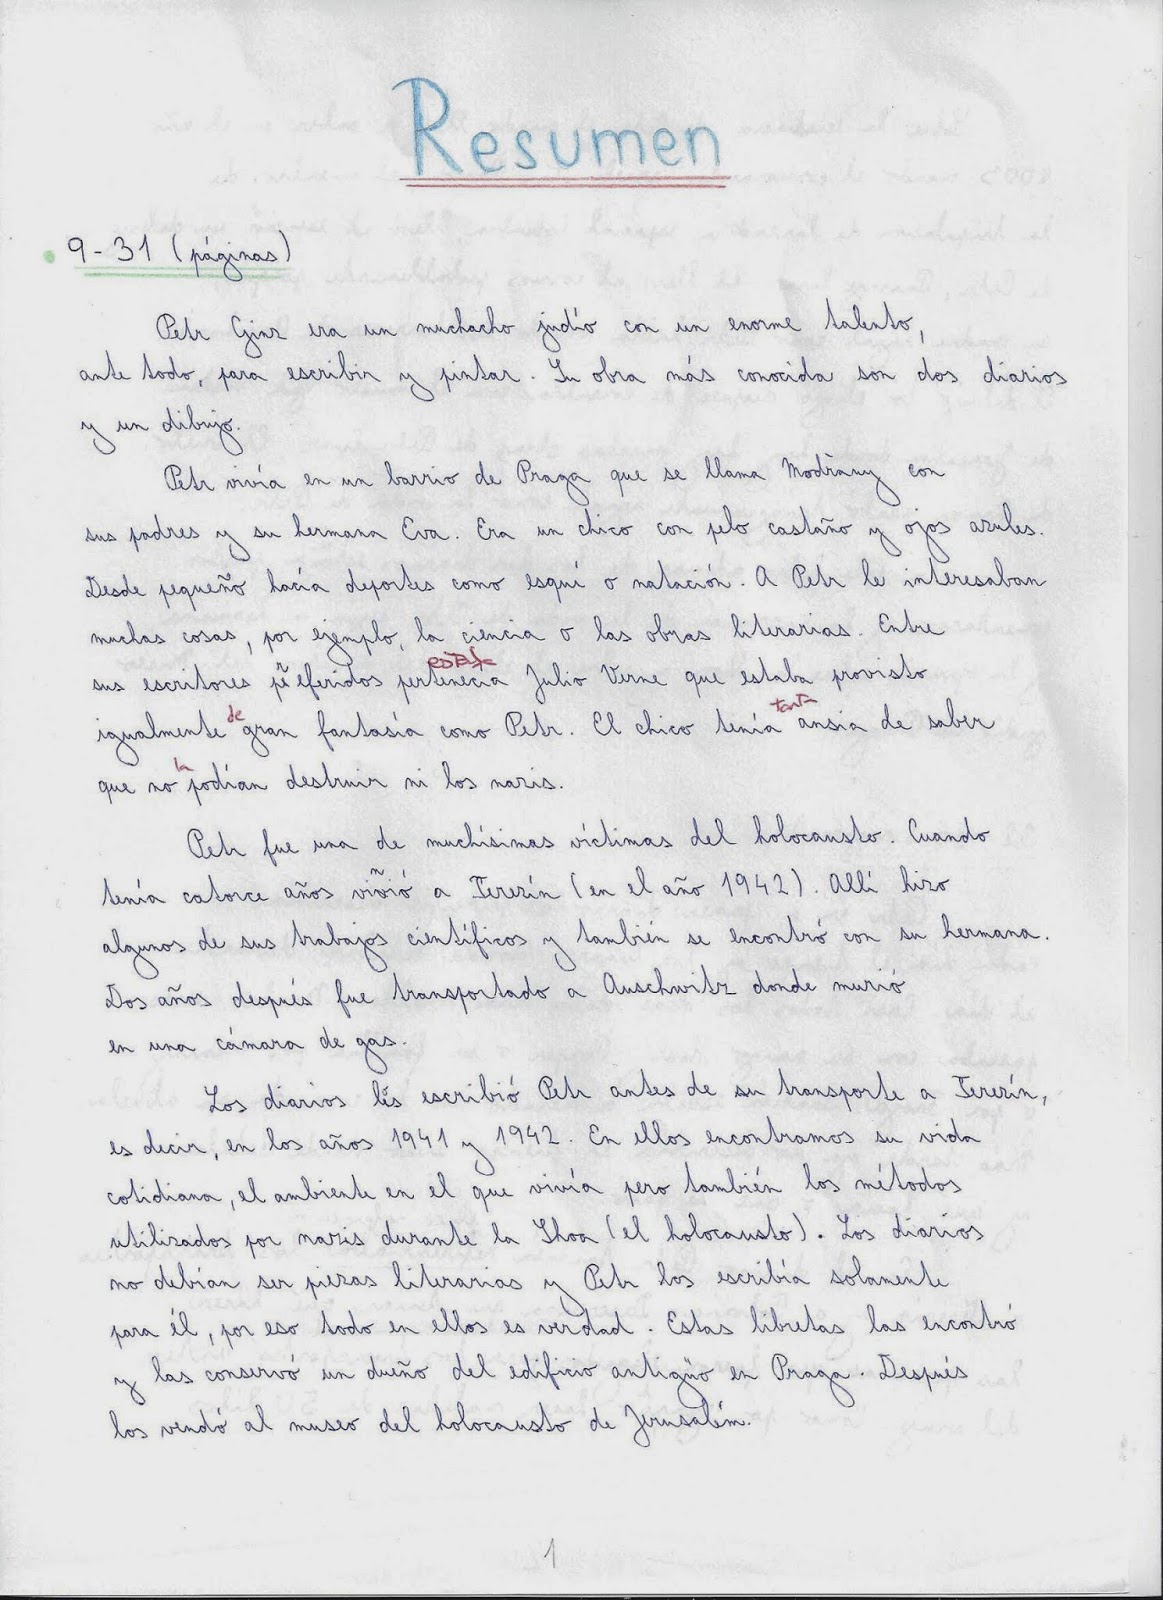 Resumen
9-31 (páginas)
Petr Ginz era un muchacho judío con un enorme talento,
ante todo, para escribir y pintar. Su obra más conocida son dos diarios
y un dibujo.
Petr vivía en un barrio de Praga que se llama Modřany con
sus padres y su hermana Eva. Era un chico con pelo castaño y ojos azules.
Desde pequeño hacía deportes como esquí o natación. A Petr le interesaban
muchas cosas, por ejemplo, la ciencia o las obras literarias. Entre
estaba
sus escritores preferidos pertenecía Julio Verne que estaba provisto
de tanta
igualmente gran fantasía como Petr. El chico tenía ansia de saber
la
que no podían destruir ni los nazis.
Petr fue una de muchísimas víctimas del holocausto. Cuando
tenía catorce años vi ió a Terezín (en el año 1942). Allí hizo
algunos de sus trabajos científicos y también se encontró con su hermana.
Dos años después fue transportado a Auschwitz donde murió
en una cámara de gas.
Los diarios los escribió Petr antes de su transporte a Terezín,
es decir, en los años 1941 y 1942. En ellos encontramos su vida
cotidiana, el ambiente en el que vivía pero también los métodos
utilizados por nazis durante la Shoa (el holocausto). Los diarios
no debían ser piezas literarias y Petr los escribía solamente
para él, por eso todo en ellos es verdad. Estas libretas las encontró
y las conservó un dueño del edificio antigüo en Praga. Después
los vendó al museo del holocausto de Jerusalém.
1